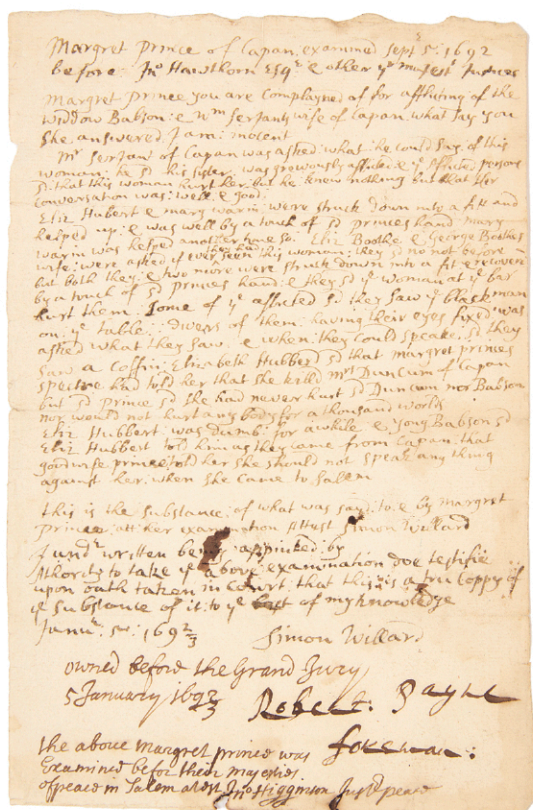 Margret Prince of Capan; examined Sept: 5: 1692
before: Jno Hawthorn Esqr: & other yr majestis Justices
Margret Prince you are Complayned of for afflicting of the
widdow Babson: & wm Serjants wife of Capan: what say you
she answered J am: inocent
mr Serjant of Capan was asked: what: he could say of this
woman: he sd his sister was grevously afflicted: & ye afflicted persons
sd: that this woman hurt her: but he knew nothing but that Her
Conversation was: well: & good.
Eliz Hubert & mary warin: were struck down into a fitt and
helped up: & was well by a touch of sd princes hand: mary
warin was helped another time so: Eliz Boothe & George Boothes
wife: were asked if they had ever seen this woman: they sd no not before
but both they: & two more were struck down into a fit & recoverd
by a touch of sd princes hand: & they sd ye woman at ye bar
hurt them: Some of ye afflicted sd they saw ye black man
on: ye table: divers of them: having their eyes fixed was
asked what they saw. & when they could speak: sd they
saw a Coffin: Elizabeth Hubbard sd that margret princes
spectre had told her that she killd mrs Duncum of Capan
but sd prince sd she had never hurt sd Duncum nor Babson
nor would not hurt any body for a thousand worlds
Eliz Hubbert was dumb: for a while & Babson sd
Eliz Hubbert told him as they came from Capan: that
goodwife prince told her she should not speak any thing
against her: when she came to Salem
this is the substance: of what was said: to & by margret
Prince: att her examination Attest Simon Willard
J undr written being: appinted by
Athority to take ye above: examination doe testifie
upon oath taken in Court: that this is a true Coppy of
ye substance of it: to ye best of my knowledge
Janur: 5: 1692/3 Simon Willard
owned before the Grand Jury
5 January 1692/3 Robert: Payne
foreman:
the above Margret prince was
Examined befor their majesties.
of peace in Salem atest Jno Higginson Just peace